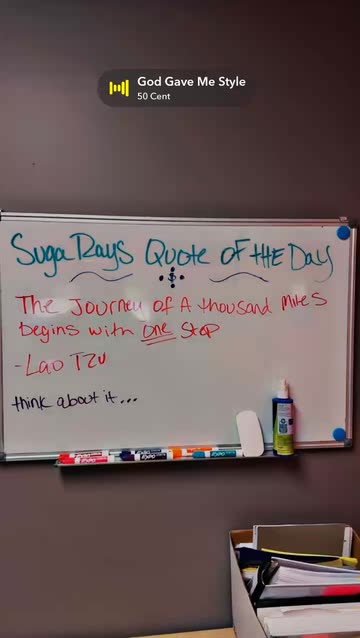 God Gave Me Style
50 Cent
Suga Rays Quote of the Day
$
The Journey of A thousand Miles
begins with one step
-Lao Tzu
think about it...
EXPO
EXPO
EXPO
EXPO